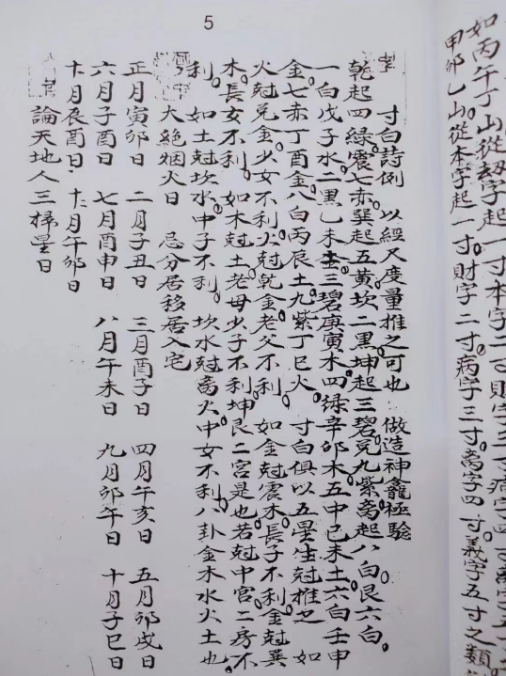 5
如丙午丁山從刼字起一寸本字二寸財字三寸病字四寸
甲卯乙山從本字起一寸。財字二寸。病字三寸。离字四寸。義字五寸之類
寸白詩例　以經尺度量推之可也　做造神龕極驗
乾起四綠震七赤。巽起五黃坎二黑。坤起三碧兌九紫。离起八白艮六白。
一白戊子水二黑乙未土三碧庚寅木。四綠辛卯木。五中己未土六白壬申
金。七赤丁酉金。八白丙辰土九紫丁巳火。　寸白俱以五星生尅推之　如
火尅兌金。少女不利火尅乾金。老父不利。　如金尅震木。長子不利金尅巽
木。長女不利。　如木尅土老母少子不利坤艮二宮是也。若尅中宮二房不
利。　如土尅坎水中子不利。　坎水尅离火中女不利。八卦金木水火土也。
大絕烟火日　忌分居移居入宅
正月寅卯日　二月子丑日　三月酉子日　四月午亥日　五月卯戌日
六月子酉日　七月酉申日　八月午未日　九月卯午日　十月子巳日
十一月辰酉日　十二月午卯日
論天地人三掃星日